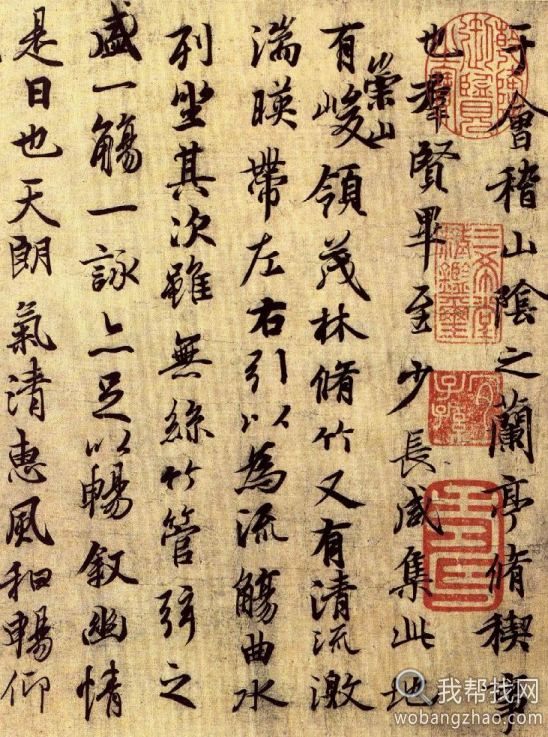 于會稽山陰之蘭亭脩稧事
也羣賢畢至少長咸集此地
有崇山峻領茂林脩竹又有清流激
湍暎帶左右引以為流觴曲水
列坐其次雖無絲竹管弦之
盛一觴一詠亦足以暢叙幽情
是日也天朗氣清惠風和暢仰
三希堂精鑑璽
宜子孫
我帮找网
wobangzhao.com